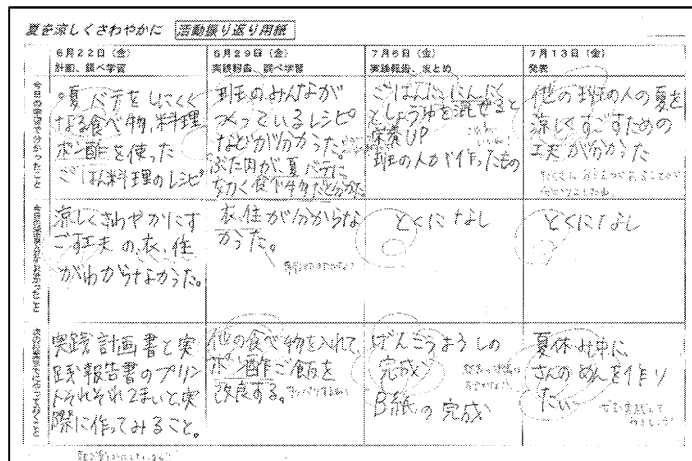 夏を涼しくさわやかに 活動振り返り用紙
6月22日（金）
計画、調べ学習
6月29日（金）
実践報告、調べ学習
7月6日（金）
実験報告、まとめ
7月13日（金）
発表
今日の学習で分かったこと
・夏バテをしにくく
なる食べ物、料理
ポン酢を使った
ごはん料理のレシピ
班のみんなが
つくっているレシピ
などが分かった。
ぶた肉が、夏バテに
効く食べ物だと分かった
ごはんに、にんにく
としょうゆを混ぜると
栄養UP
班の人が作ったもの
他の班の人の夏を
涼しくすごすための
工夫が分かった
今日の学習で分からなかったこと
涼しくさわやかにす
ごす工夫の、衣、住
がわからなかった。
衣、住が分からな
かった。
とくになし
とくになし
次の授業までにやっておくこと
実践計画書と実
践報告書のプリン
トそれぞれ2まいと実
際に作ってみること。
他の食べ物を入れて、
ポン酢ご飯を
改良する。
ばんこうようしの
完成
B紙の完成
夏休み中に
さんのめんを作り
たい